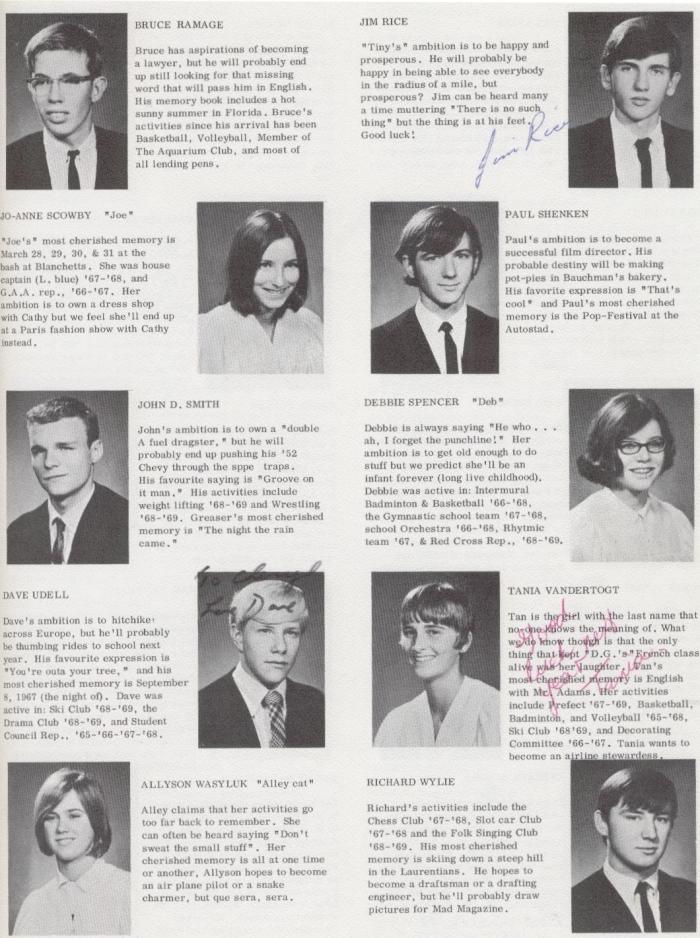 BRUCE RAMAGE
Bruce has aspirations of becoming
a lawyer, but he will probably end
up still looking for that missing
word that will pass him in English.
His memory book includes a hot
sunny summer in Florida. Bruce's
activities since his arrival has been
Basketball, Volleyball, Member of
The Aquarium Club, and most of
all lending pens.
JIM RICE
"Tiny's" ambition is to be happy and
prosperous. He will probably be
happy in being able to see everybody
in the radius of a mile, but
prosperous? Jim can be heard many
a time muttering "There is no such
thing" but the thing is at his feet.
Good luck!
Jim Rice
JO-ANNE SCOWBY "Joe"
"Joe's" most cherished memory is
March 28, 29, 30, & 31 at the
bash at Blanchetts. She was house
captain (L. blue) '67-'68, and
G.A.A. rep., '66-'67. Her
ambition is to own a dress shop
with Cathy but we feel she'll end up
at a Paris fashion show with Cathy
instead.
PAUL SHENKEN
Paul's ambition is to become a
successful film director. His
probable destiny will be making
pot-pies in Bauchman's bakery.
His favorite expression is "That's
cool" and Paul's most cherished
memory is the Pop-Festival at the
Autostad.
JOHN D. SMITH
John's ambition is to own a "double
A fuel dragster," but he will
probably end up pushing his '52
Chevy through the sppe traps.
His favourite saying is "Groove on
it man." His activities include
weight lifting '68-'69 and Wrestling
'68-'69. Greaser's most cherished
memory is "The night the rain
came."
DEBBIE SPENCER "Deb"
Debbie is always saying "He who . . .
ah, I forget the punchline!" Her
ambition is to get old enough to do
stuff but we predict she'll be an
infant forever (long live childhood).
Debbie was active in: Intermural
Badminton & Basketball '66-'68,
the Gymnastic school team '67-'68,
school Orchestra '66-'68, Rhytmic
team '67, & Red Cross Rep., '68-'69.
DAVE UDELL
Dave's ambition is to hitchike
across Europe, but he'll probably
be thumbing rides to school next
year. His favourite expression is
"You're outa your tree," and his
most cherished memory is September
8, 1967 (the night of). Dave was
active in: Ski Club '68-'69, the
Drama Club '68-'69, and Student
Council Rep., '65-'66-'67-'68.
To Cheryl
Love Dave
TANIA VANDERTOGT
Tan is the girl with the last name that
no one knows the meaning of. What
we do know though is that the only
thing that kept "D.G.'s" French class
alive was her laughter. Tan's
most cherished memory is English
with Mr. Adams. Her activities
include Prefect '67-'69, Basketball,
Badminton, and Volleyball '65-'68,
Ski Club '68'69, and Decorating
Committee '66-'67. Tania wants to
become an airline stewardess.
Good
luck
Tania
ALLYSON WASYLUK "Alley cat"
Alley claims that her activities go
too far back to remember. She
can often be heard saying "Don't
sweat the small stuff". Her
cherished memory is all at one time
or another, Allyson hopes to become
an air plane pilot or a snake
charmer, but que sera, sera.
RICHARD WYLIE
Richard's activities include the
Chess Club '67-'68, Slot car Club
'67-'68 and the Folk Singing Club
'68-'69. His most cherished
memory is skiing down a steep hill
in the Laurentians. He hopes to
become a draftsman or a drafting
engineer, but he'll probably draw
pictures for Mad Magazine.